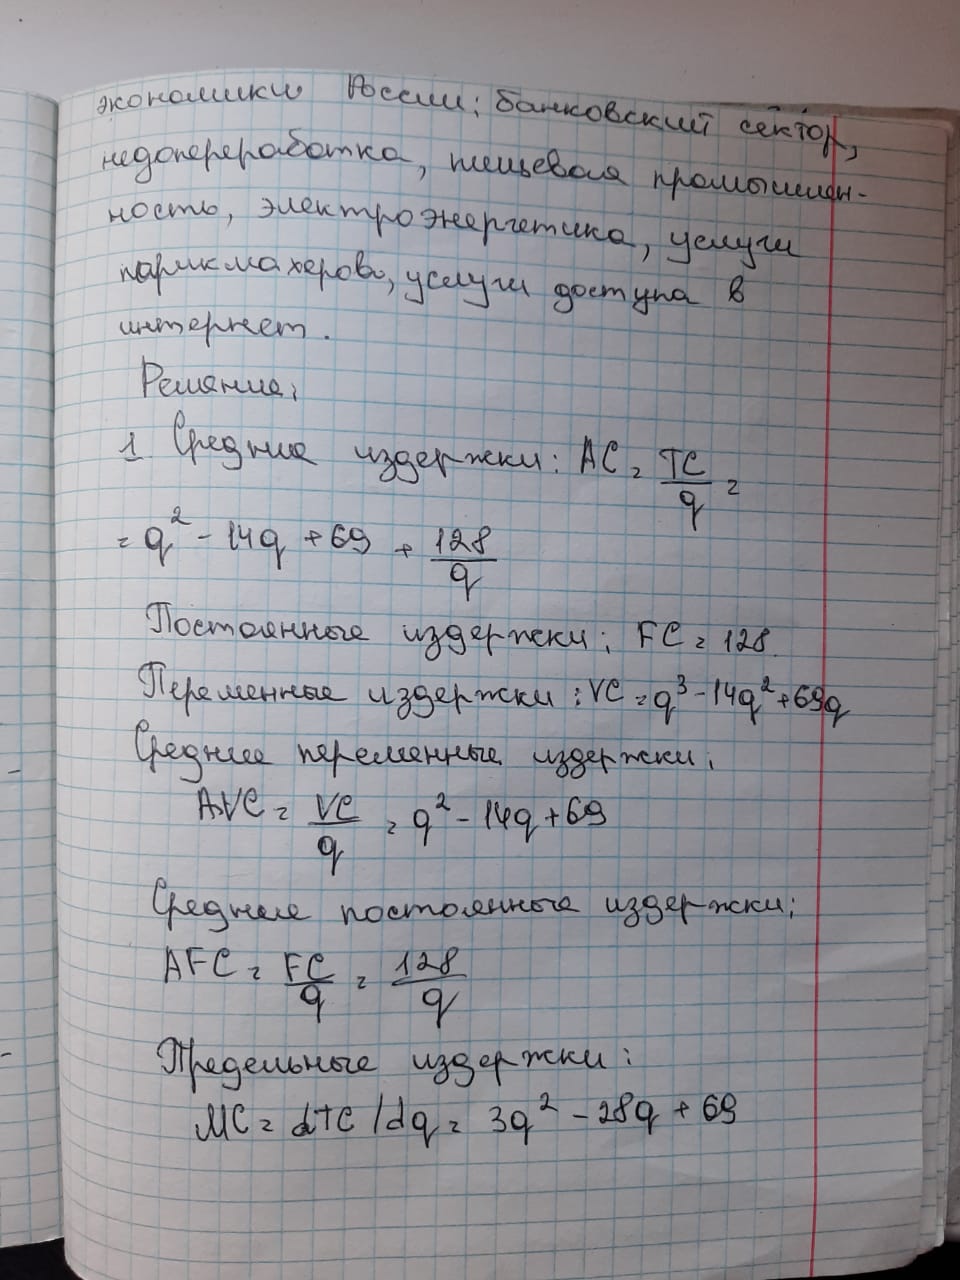 экономики России: банковский сектор,
недопереработка, пищевая промышлен-
ность, электроэнергетика, услуги
парикмахеров, услуги доступа в
интернет.
Решение:
1 Средние издержки: AC = TC/q =
= q² - 14q + 69 + 128/q
Постоянные издержки: FC = 128.
Переменные издержки: VC = q³ - 14q² + 69q
Средние переменные издержки:
AVC = VC/q = q² - 14q + 69
Средние постоянные издержки:
AFC = FC/q = 128/q
Предельные издержки:
MC = dTC/dq = 3q² - 28q + 69